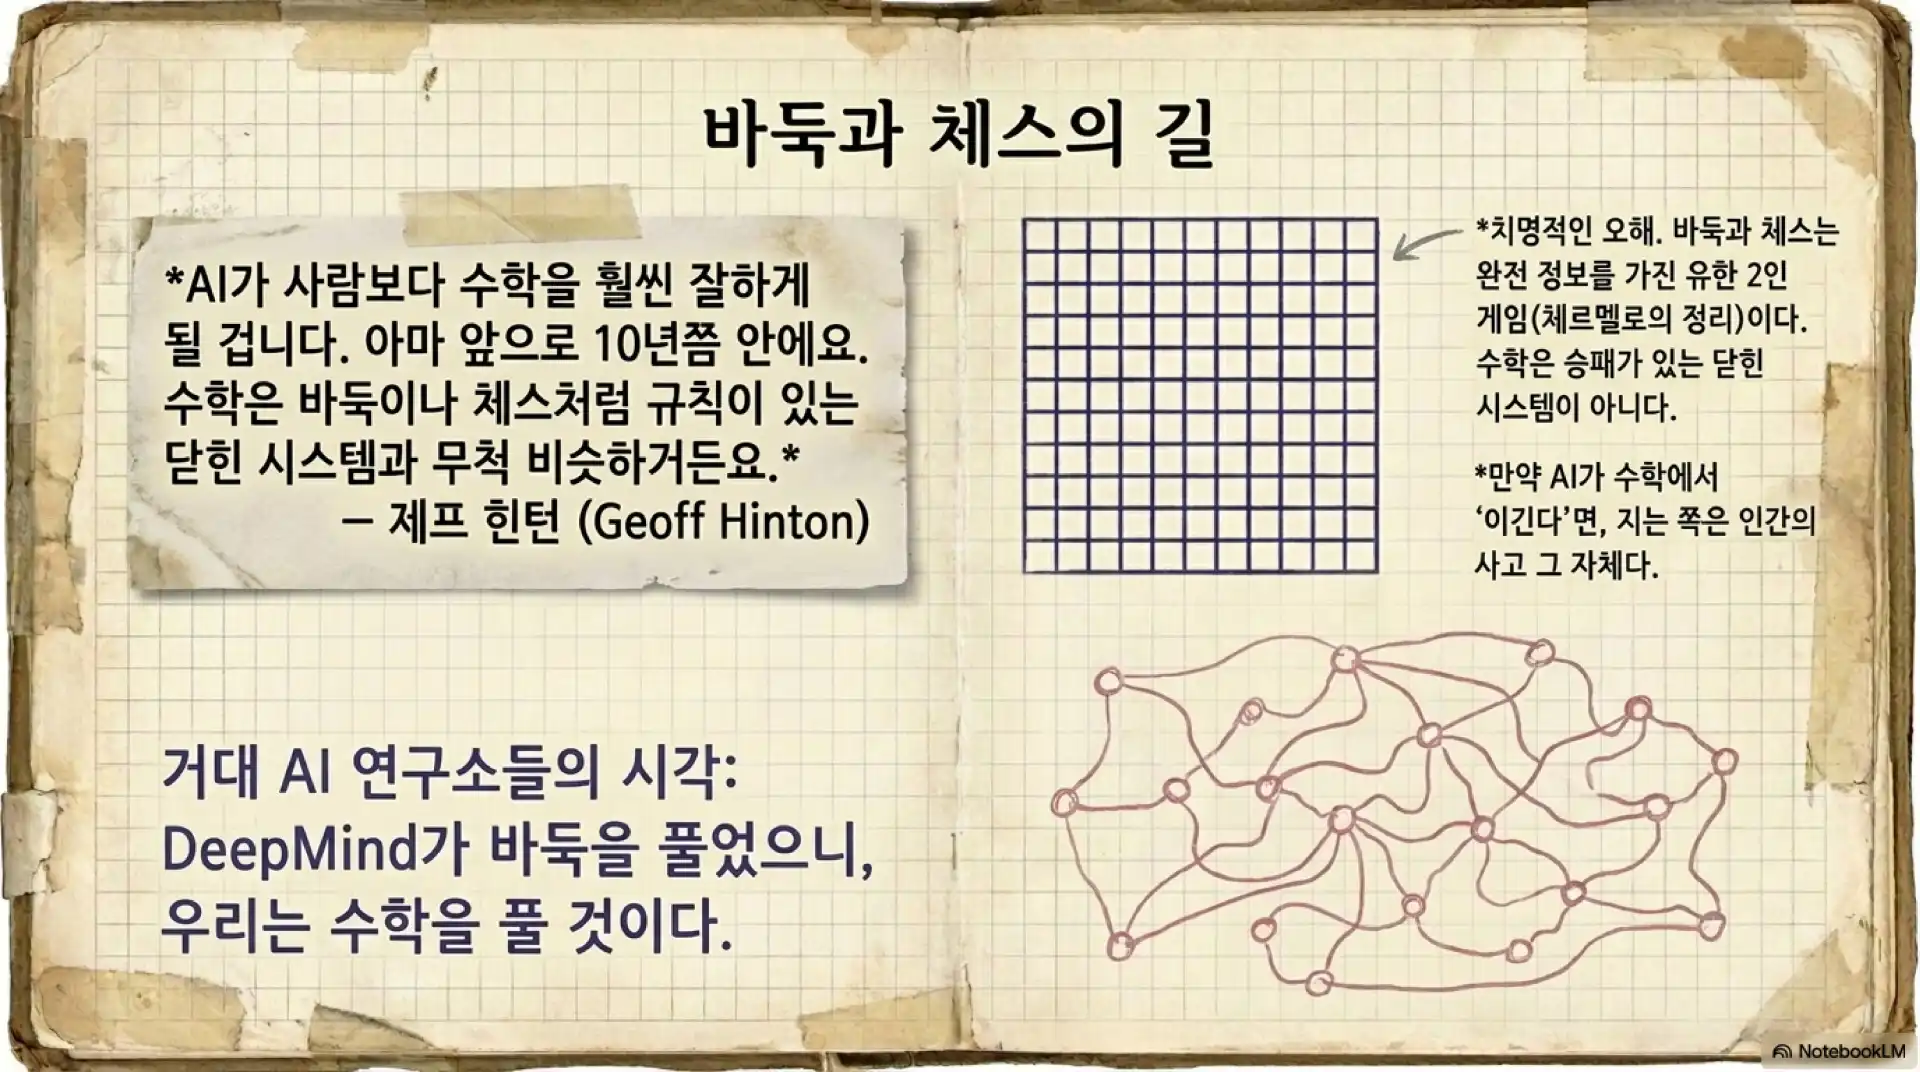 바둑과 체스의 길
*AI가 사람보다 수학을 훨씬 잘하게
될 겁니다. 아마 앞으로 10년쯤 안에요.
수학은 바둑이나 체스처럼 규칙이 있는
닫힌 시스템과 무척 비슷하거든요.*
– 제프 힌턴 (Geoff Hinton)
거대 AI 연구소들의 시각:
DeepMind가 바둑을 풀었으니,
우리는 수학을 풀 것이다.
*치명적인 오해. 바둑과 체스는
완전 정보를 가진 유한 2인
게임(체르멜로의 정리)이다.
수학은 승패가 있는 닫힌
시스템이 아니다.
*만약 AI가 수학에서
‘이긴다’면, 지는 쪽은 인간의
사고 그 자체다.
NotebookLM